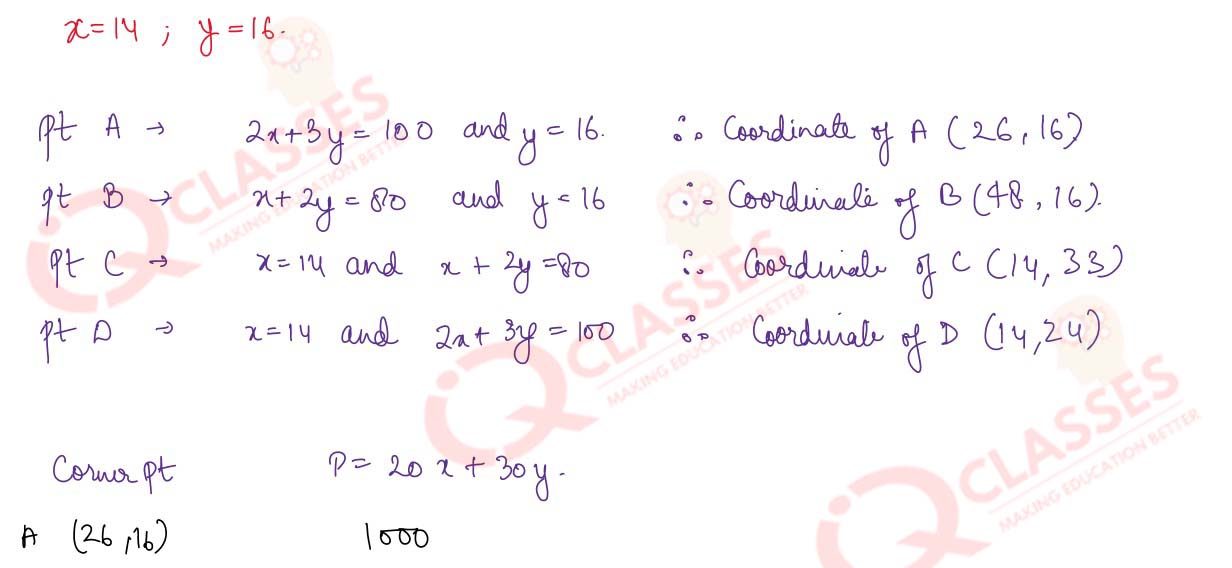 x=14 ; y=16.
pt A → 2x+3y=100 and y=16. ∴ Coordinate of A (26,16)
pt B → x+2y=80 and y=16 ∴ Coordinate of B (48,16).
pt C → x=14 and x+2y=80 ∴ Coordinate of C (14,33)
pt D → x=14 and 2x+3y=100 ∴ Coordinate of D (14,24)
Corner pt P= 20x+30y.
A (26,16) 1000
IQ CLASSES
MAKING EDUCATION BETTER
IQ CLASSES
MAKING EDUCATION BETTER
IQ CLASSES
MAKING EDUCATION BETTER